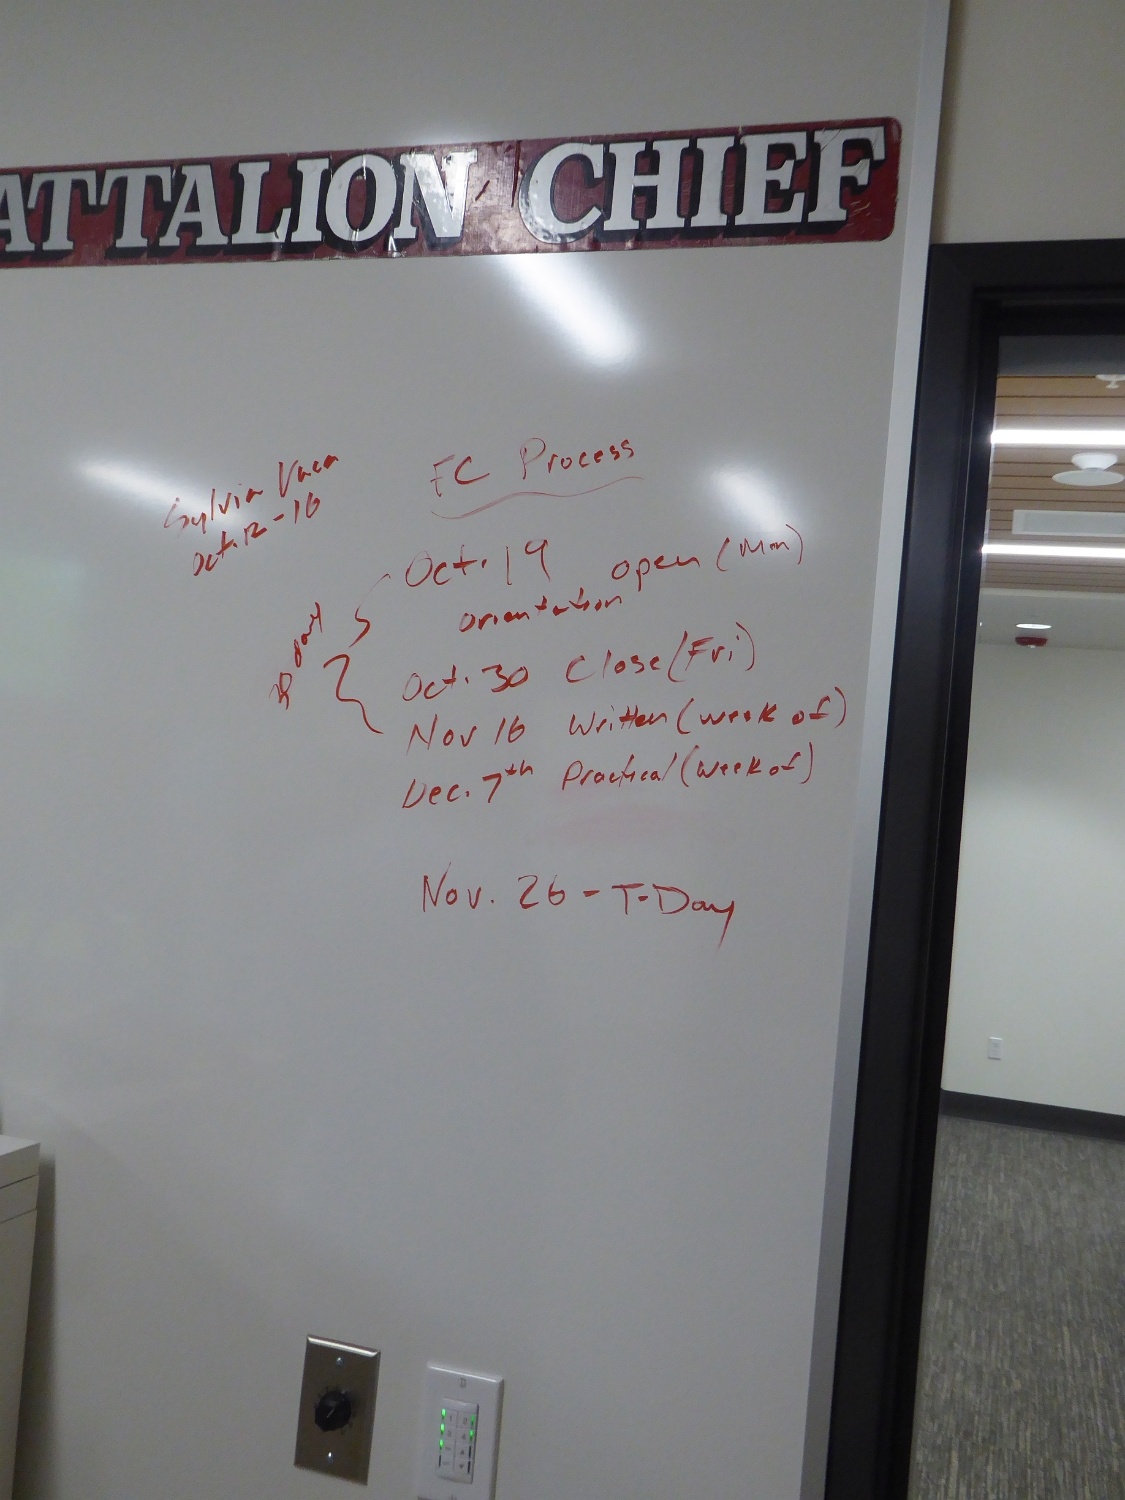 ATTALION CHIEF
FC Process
Sylvia Vaca
Oct. 12-16
Oct. 19 open (Mon)
orientation
28 day
Oct. 30 Close (Fri)
Nov 16 Written (week of)
Dec. 7th Practical (week of)
Nov. 26 - T-Day